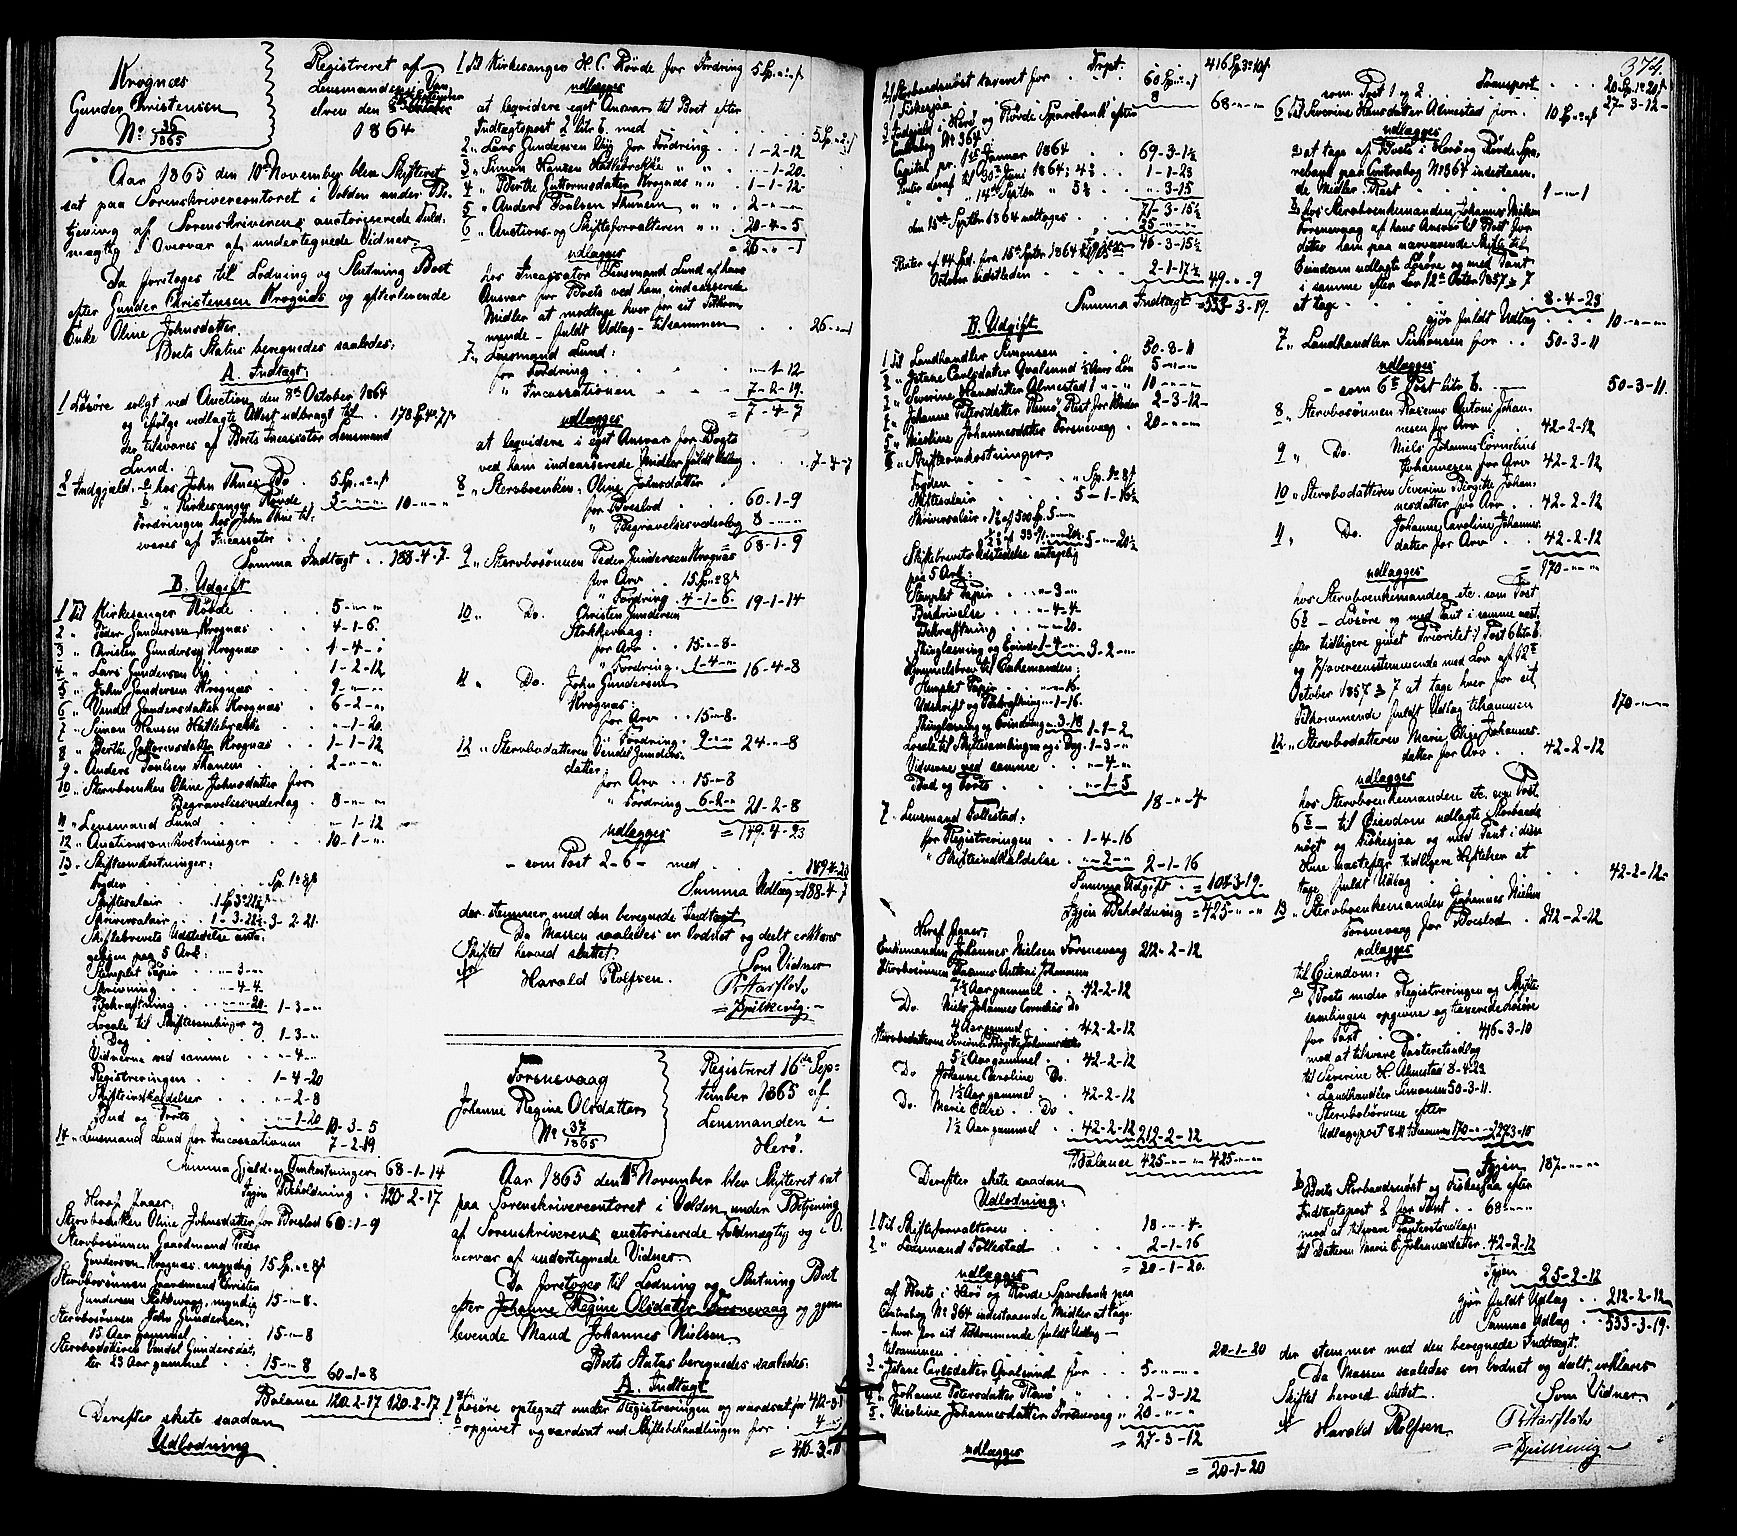 Krognæs
Gunder Christensen
No 36/1865
Registreret af
Lensmanden
elven den
1864
Aar 1865 den 10 November blev Skifteret
sat paa Sorenskrivercontoret i Volden under Be-
tjening af Sorenskriverens autoriserede Fuld-
mægtig i Overvær af undertegnede Vidner.
Da foretoges til Lodning og Slutning Boet
efter Gunder Christensen Krognæs og efterlevende
Enke Oline Johnsdatter.
Boets Status beregnedes saaledes:
A. Indtægt.
1 Løsøre solgt ved Auction den 8de October 1864
og ifølge vedlagte Attest udbragt til 178 Sp 4 7 s
der tilsvares af Boets Incassator Lensmand
Lund.
2 Indgjæld. a hos John Thues Bo 5 Sp " "
b " Kirkesanger Røvde 5 - " - " 10 - " - "
Fordringen hos John Thue til-
svares af Incassator
Summa Indtægt 188-4-7.
B. Udgift
1 Til Kirkesanger Røvde 5 - " - "
2 " Peder Gundersen Krognæs 4-1-6.
3 " Christen Gundersen Krognæs 1-4-"
4 " Lars Gundersen 1-2-12
5 " John Gundersen Krognæs 9 - " - "
6 " Vendel Gundersdatter Krognæs 6-2-"
7 " Simon Hansen Hatlebrække " -1-20
8 " Berthe Guttormsdatter Krognæs 1-1-12
9 " Anders Poulsen 2 - " - "
10 " Stervboenken Oline Johnsdatter for
Begravelsesudlæg 8 - " - "
11 " Lensmand Lund " -1-12
12 " Auctionsomkostninger 10-1-"
13 " Skifteomkostninger:
Skiftesalair
Skriversalair 3-2-21
Skiftebrevets Udstedelse anta-
geligen paa 5 Ark:
Stemplet Papir " -3-"
Skrivning " -4-4
Bekræftning " - " -20 1-3-"
Locale til Skiftesamlinger og
i Dag 1-3-"
Vidnerne ved samme " -4-"
Registreringen 1-4-20
Skifteindkaldelser " -2-8
Bud og Porto " -1-20 10-3-5
14 " Lensmand Lund for Incassationen 7-2-19
Summa Gjæld og Omkostninger 68-1-14
Igjen Beholdning 120-2-17
Heraf tager:
Stervboenken Oline Johnsdatter for Boeslod 60-1-9
Stervbosønnen Gaardmand Peder
Gundersen Krognæs, myndig 15 Sp " 8 s
Stervbosønnen Gaardmand Christen
Gundersen Stokkevaag, myndig 15-"-8.
Stervbosønnen John Gundersen,
15 Aar gammel 15-"-8
Stervbodatteren Vendel Gundersdat-
ter 23 Aar gammel 15-"-8 60-1-8
Balance 120-2-17 120-2-17
Derefter skete saadan
Udlodning
1 Til Kirkesanger H. C. Røvde for Fordring 5 Sp " "
udlægges
at leqvidere eget Ansvar til Boet efter
Indtægtspost 2 lit. b. med 5 Sp " "
2 " Lars Gundersen for Fordring 1-2-12
3 " Simon Hansen Hatlebrække " " " -1-20.
4 " Berthe Guttormsdatter Krognæs " " 1-1-12
5 " Anders Poulsen " " 2 - " - "
6 " Auctions- og Skifteforvalteren " " 20-4-5
= 26-"-1
udlægges
hos Incassator Lensmand Lund af hans
Ansvar for Boets ved ham indcasserede
Midler at modtage hver for sit Tilkom-
mende - fuldt Udlæg - tilsammen 26-"-1
7 " Lensmand Lund:
for Fordring " -1-12
" Incassationen 7-2-19.
= 7-4-7
udlægges
at leqvidere i eget Ansvar for Boets
ved ham indcasserede Midler fuldt Udlæg 7-4-7
8 " Stervboenken, Oline Johnsdatter
for Boeslod 60-1-9
" Begravelsesudlæg 8 - " - "
68-1-9
9 " Stervbosønnen Peder Gundersen Krognæs
for Arv 15 Sp " 8 s
" Fordring 4-1-6. 19-1-14
10 " Do. Christen Gundersen
Stokkevaag:
for Arv 15-"-8-
" Fordring 1-4-" 16-4-8
11 " Do. John Gundersen
Krognæs:
for Arv 15-"-8.
" Fordring 9-"-" 24-"-8
12 " Stervbodatteren Vendel Gunders-
datter
for Arv 15-"-8
" Fordring 6-2-" 21-2-8
udlægges = 149-4-23
- som Post 2-6 - med 149-4-23
Summa Udlæg = 188-4-7
der stemmer med den beregnede Indtægt.
Da Massen saaledes er lodnet og deelt erklæres
Skiftet herved sluttet.
Harald Rolfsen.
Som Vidner
Forsnevaag
Johanne Regine Olsdatter
No 37/1865
Registreret 16de Sep-
tember 1865 af
Lensmanden i
Herø.
Aar 1865 den November blev Skifteret sat
paa Sorenskrivercontoret i Volden under Betjening
af Sorenskriverens autoriserede Fuldmægtig og i O-
vervær af undertegnede Vidner.
Da foretoges til Lodning og Slutning Boet
efter Johanne Regine Olsdatter Forsnevaag og gjen-
levende Mand Johannes Nielsen.
Boets Status beregnedes saaledes:
A. Indtægt
1 a Løsøre optegnet under Registreringen og vurderet for
b opgivet og vurderet ved Skiftebehandlingen for 4 - " - "
= 416-3-10
Trpt. 416 Sp 3 10 s
2 Størbaadsnøst vurderet for 60 Sp " "
Fiskesjaa 8 68-"-"
3 Indgjæld i Herø og Røvde Sparebank efter
Contrabog No 364
Capital pr. 1ste Januar 1864 69-3-1½
Renter deraf til 30te Juni 1864, 4½ 1-1-23
" " 14de Septbr " 5½ " -3-15
71-3-15½
den 15de Septbr 1864 udtoges 25 - " - "
46-3-15½
Renter af 44 Spd. fra 15de Septbr 1864 til
October 2-1-17½ 49-"-9
Summa Indtægt = 533-3-19.
B. Udgift
1 Til Landhandler Simonsen 50-3-11
2 " Jetane Carlsdatter ½ Aars Løn 5 - " - "
3 " Severine Hansdatter Almestad 1 " " 10 - " - "
4 " Johanne Petersdatter Remø, Rest for Klæder 2-3-12
5 " Nicoline Johannesdatter Forsnevaag 20 - " - "
6 " Skifteomkostninger
Skiftesalair
Skriversalair
Skiftebrevets Udstedelse antagelig
paa 5 Ark:
Stemplet Papir " -3-"
Beskrivelse " -4-4
Bekræftning " - " -20.
3-2-"
Hjemmelsbrev til Enkemanden:
Stemplet Papir
Udskrift og Bekræftning
1-1-2
Locale til Skiftesamlingen og i Dag 1-3-"
Vidnerne ved samme " -4-"
Bud og Porto " -1-5
18-"-4
7 " Lensmand Tollestad:
for Registreringen 1-4-16
" Skifteindkaldelse " -2-" 2-1-16
Summa Udgift = 108-3-19.
Igjen Beholdning = 425-"-"
Heraf tager:
Enkemanden Johannes Nielsen Forsnevaag 212-2-12
Stervbosønnen Rasmus Antoni Johannesen
7½ Aar gammel 42-2-12
Do Niels Johannes Cornelius Do
4 Aar gammel 42-2-12
Stervbodatteren Severine Birgitte Johannesdatter
5½ Aar gammel 42-2-12
Do Johanne Caroline Do.
1½ Aar gammel 42-2-12
Do. Marie Elise Do
1½ Aar gammel 42-2-12 212-2-12
Balance 425-"-" 425-"-"
Derefter skete saadan
Udlodning:
1 Til Skifteforvalteren 18-"-4
2 " Lensmand Tollestad 2-1-16
= 20-1-20.
udlægges
af Boets i Herø og Røvde Sparebank paa
Contrabog No 364 indestaaende Midler at tage
- hver for sit Tilkommende fuldt Udlæg -
tilsammen 20-1-20
3 " Jetane Carlsdatter for 5 - " - "
4 " Johanne Petersdatter Remø " 2-3-12
5 " Nicoline Johannesdatter Forsnevaag " 20 - " - "
= 27-3-12
udlægges
= 20-1-20
374.
Transport 20 Sp 1 20 s
som Post 1 og 2 27-3-12
6 Til Severine Hansdatter Almestad for 10 Sp " "
udlægges
a at tage af Boets i Herø og Røvde Spa-
rebank paa Contrabog No 364 indestaaen-
de Midler Rest 1-"-1
b hos Stervboenkemanden Johannes Nielsen
Forsnevaag af hans Ansvar til Boet for
det ham paa nærværende Skifte til
Eiendom udlagte Løsøre og med Pant
i samme efter Lov 12te Octbr 1857 § 7
at tage 8-4-23
gjør fuldt Udlæg 10 - " - "
7 " Landhandler Simonsen for 50-3-11
udlægges
- som 6te Post lito b. 50-3-11.
8 " Stervbosønnen Rasmus Antoni Johan-
nesen for Arv 42-2-12
9 " Do. Niels Johannes Cornelius
Johannesen for Arv 42-2-12
10 " Stervbodatteren Severine Birgitte Johan-
nesdatter for Arv 42-2-12
11 " Do. Johanne Caroline Johannes-
datter for Arv 42-2-12
udlægges = 170-"-"
hos Stervboenkemanden etc. som Post
6 b - Løsøre og med Pant i samme næst
efter tidligere givet Prioritet Post 6 lit b.
og 7 overeensstemmende med Lov af 12te
October 1857 § 7 at tage hver for sit
Tilkommende fuldt Udlæg tilsammen 170-"-"
12 " Stervbodatteren Marie Elise Johannes-
datter for Arv 42-2-12
udlægges
hos Stervboenkemanden etc. som Post
6 b - til Eiendom udlagte Storbaads-
nøst og Fiskesjaa og med Pant i disse
Huse næstefter tidligere Heftelser at
tage fuldt Udlæg 42-2-12
13 " Stervboenkemanden Johannes Nielsen
Forsnevaag for Boeslod 212-2-12
udlægges
til Eiendom:
a Boets under Registreringen og Skifte-
samlingen opgivne og taxerede Løsøre
for Pant 416-3-10
med at tilsvare Panteretsudlæg
til Severine H. Almestad 8-4-23
" Landhandler Simonsen 50-3-11.
" Stervbobørnene efter
Udlægspost 8-11 tilsammen 170-"-"
Igjen 187-"-"
b Boets Storbaadsnøst og Fiskesjaa efter
Indtægtspost 2 for Pant 68-"-"
med at tilsvare Panteretsudlæg
til Datteren Marie E. Johannesdatter 42-2-12
Igjen 25-2-12
gjør fuldt Udlæg 212-2-12
Summa Udlæg 533-3-19.
der stemmer med den beregnede Indtægt.
Da Massen saaledes er lodnet og deelt, erklæres
Skiftet herved sluttet.
Som Vidner
Harald Rolfsen.